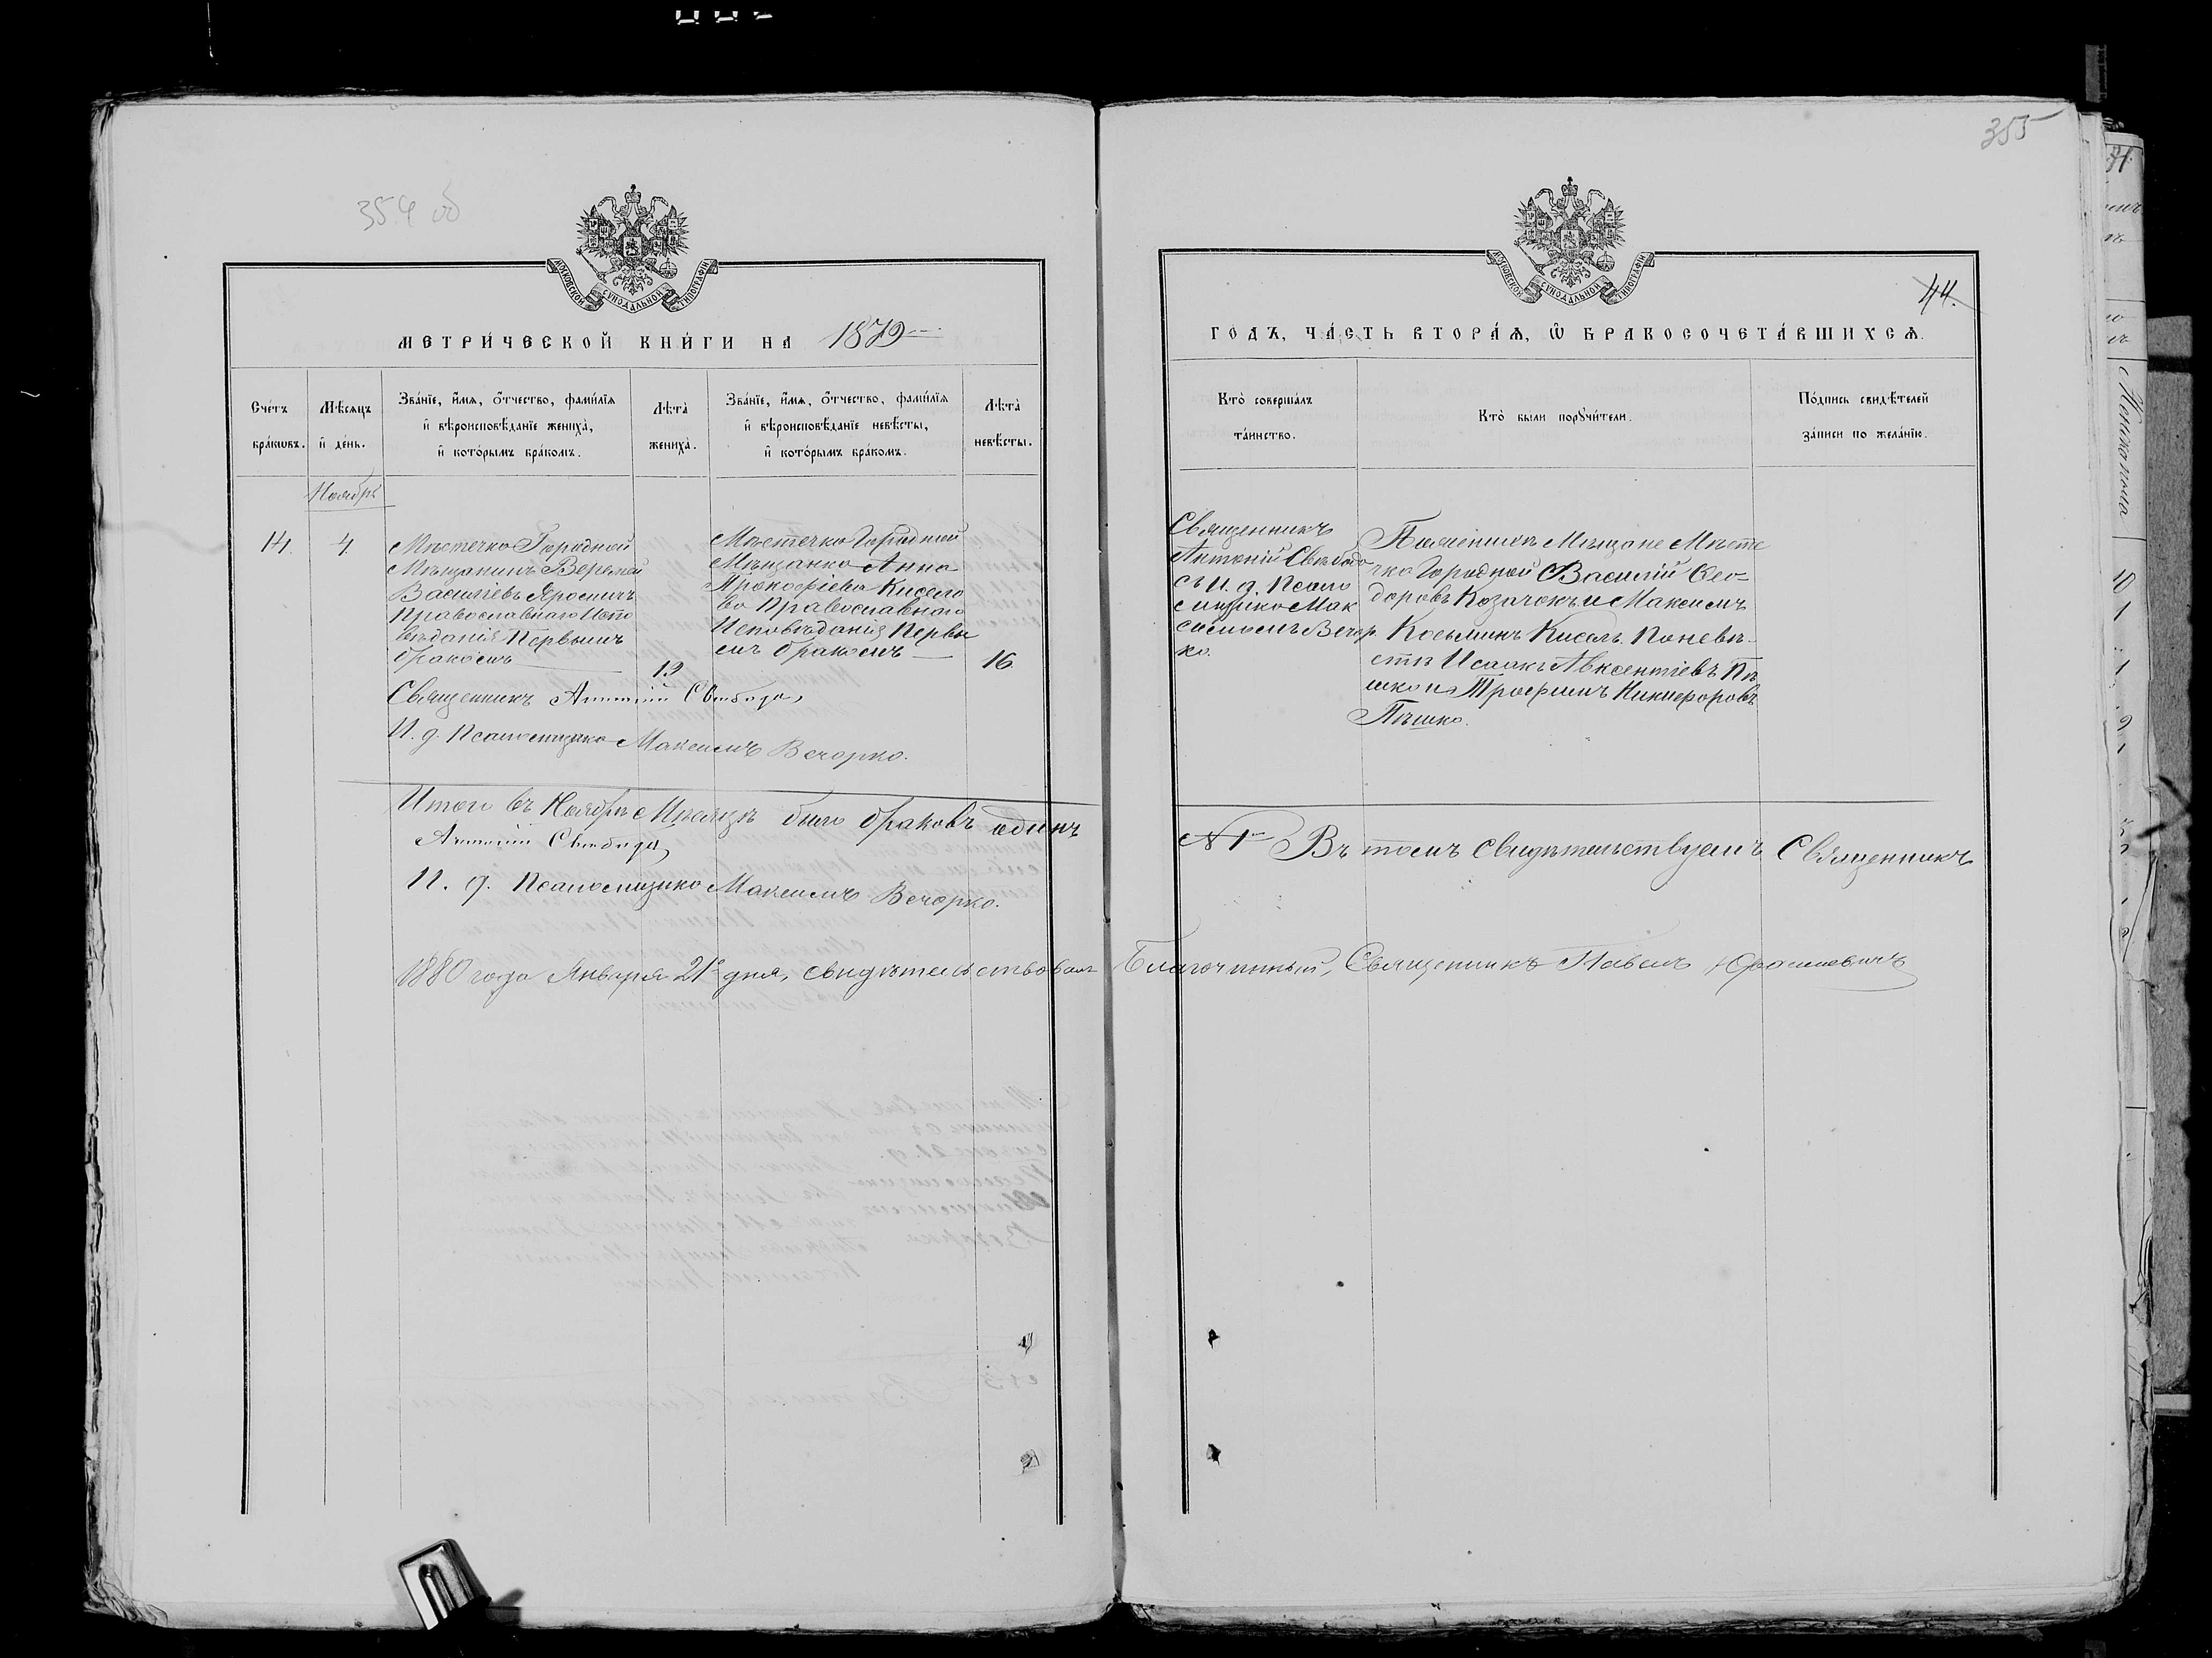 355
354 об
МОСКОВСКОЙ СѴНОДАЛЬНОЙ ТИПОГРАФІИ
МЕТРИ́ЧЕСКОЙ КНИ́ГИ НА 1879
Сче́тъ бра́ковъ.
Мѣ́сяцъ и҆ де́нь.
Зва́нїе, и҆́мѧ, ѻ҆́тчество, фами́лїѧ
и҆ вѣроисповѣ́данїе жениха̀,
и҆ кото́рымъ бра́комъ.
Лѣ́та̀ жениха̀.
Зва́нїе, и҆́мѧ, ѻ҆́тчество, фами́лїѧ
и҆ вѣроисповѣ́данїе невѣ́сты,
и҆ кото́рымъ бра́комъ.
Лѣ́та̀ невѣ́сты.
Ноябрь
14.
4
Мѣстечка Городной
Мѣщанинъ Веремей
Василіевъ Яросичъ
Православнаго Испо
вѣданія Первымъ
бракомъ
19
Мѣстечка Городной
Мѣщанка Анна
Прокофіева Кисело
ва Православнаго
Исповѣданія Первы
мъ бракомъ
16
Священникъ Антоній Свобода
И. д. Псаломщика Максимъ Вечорко.
Итого въ Ноябрѣ Мѣсяцѣ было браковъ одинъ
Антоній Свобода
И. д. Псаломщика Максимъ Вечорко.
1880 года Января 21º дня, свидѣтельствовалъ
МОСКОВСКОЙ СѴНОДАЛЬНОЙ ТИПОГРАФІИ
44.
ГОДЪ, ЧА́СТЬ ВТОРА́Ѧ, Ѽ БРАКОСОЧЕТА́ВШИХСѦ.
Кто̀ соверша́лъ
та́инство.
Кто̀ были порꙋчи́тели.
По́дпись свидѣ́телей
за́писи по жела́нїю.
Священникъ
Антоній Свобода
съ И. д. Псало
мщика Мак
симомъ Вечор
ко.
По женихѣ Мѣщане Мѣсте
чка Городной Василій Ѳео-
доровъ Козачокъ и Максимъ
Косьминъ Кисель. По невѣ-
стѣ Исаакъ Авксентіевъ Пѣ
шко и Трофимъ Никифоровъ
Пѣшко.
№ 1 Въ томъ свидѣтельствуемъ Священникъ
Благочинный, Священникъ Павелъ Юрашкевичъ